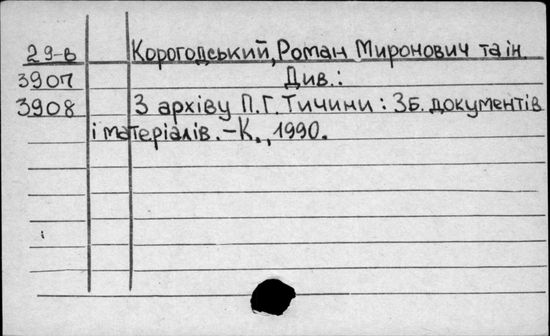 29-в Корогодський, Роман Миронович та ін.
3907 Див.:
3908 З архіву П.Г. Тичини : Зб. документів
і матеріалів. – К., 1990.